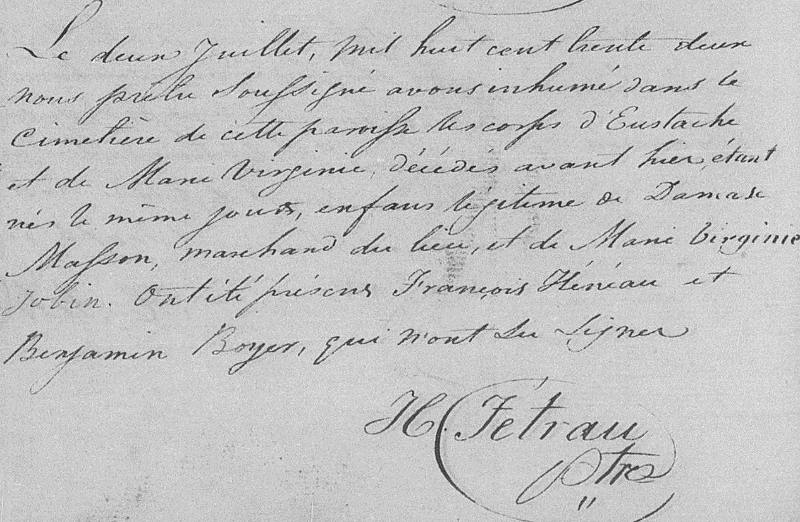 Le deux Juillet, mil huit cent trente deux
nous prêtre Soussigné avons inhumé dans le
Cimetière de cette paroisse les corps d'Eustache
et de Marie Virginie, décédés avant hier, étant
nés le même jour, enfans légitime de Damase
Masson, marchand du lieu, et de Marie Virginie
Jobin. Ont été présens François Hénéau et
Benjamin Boyer, qui n'ont su signer
H. Fétrau
Ptre